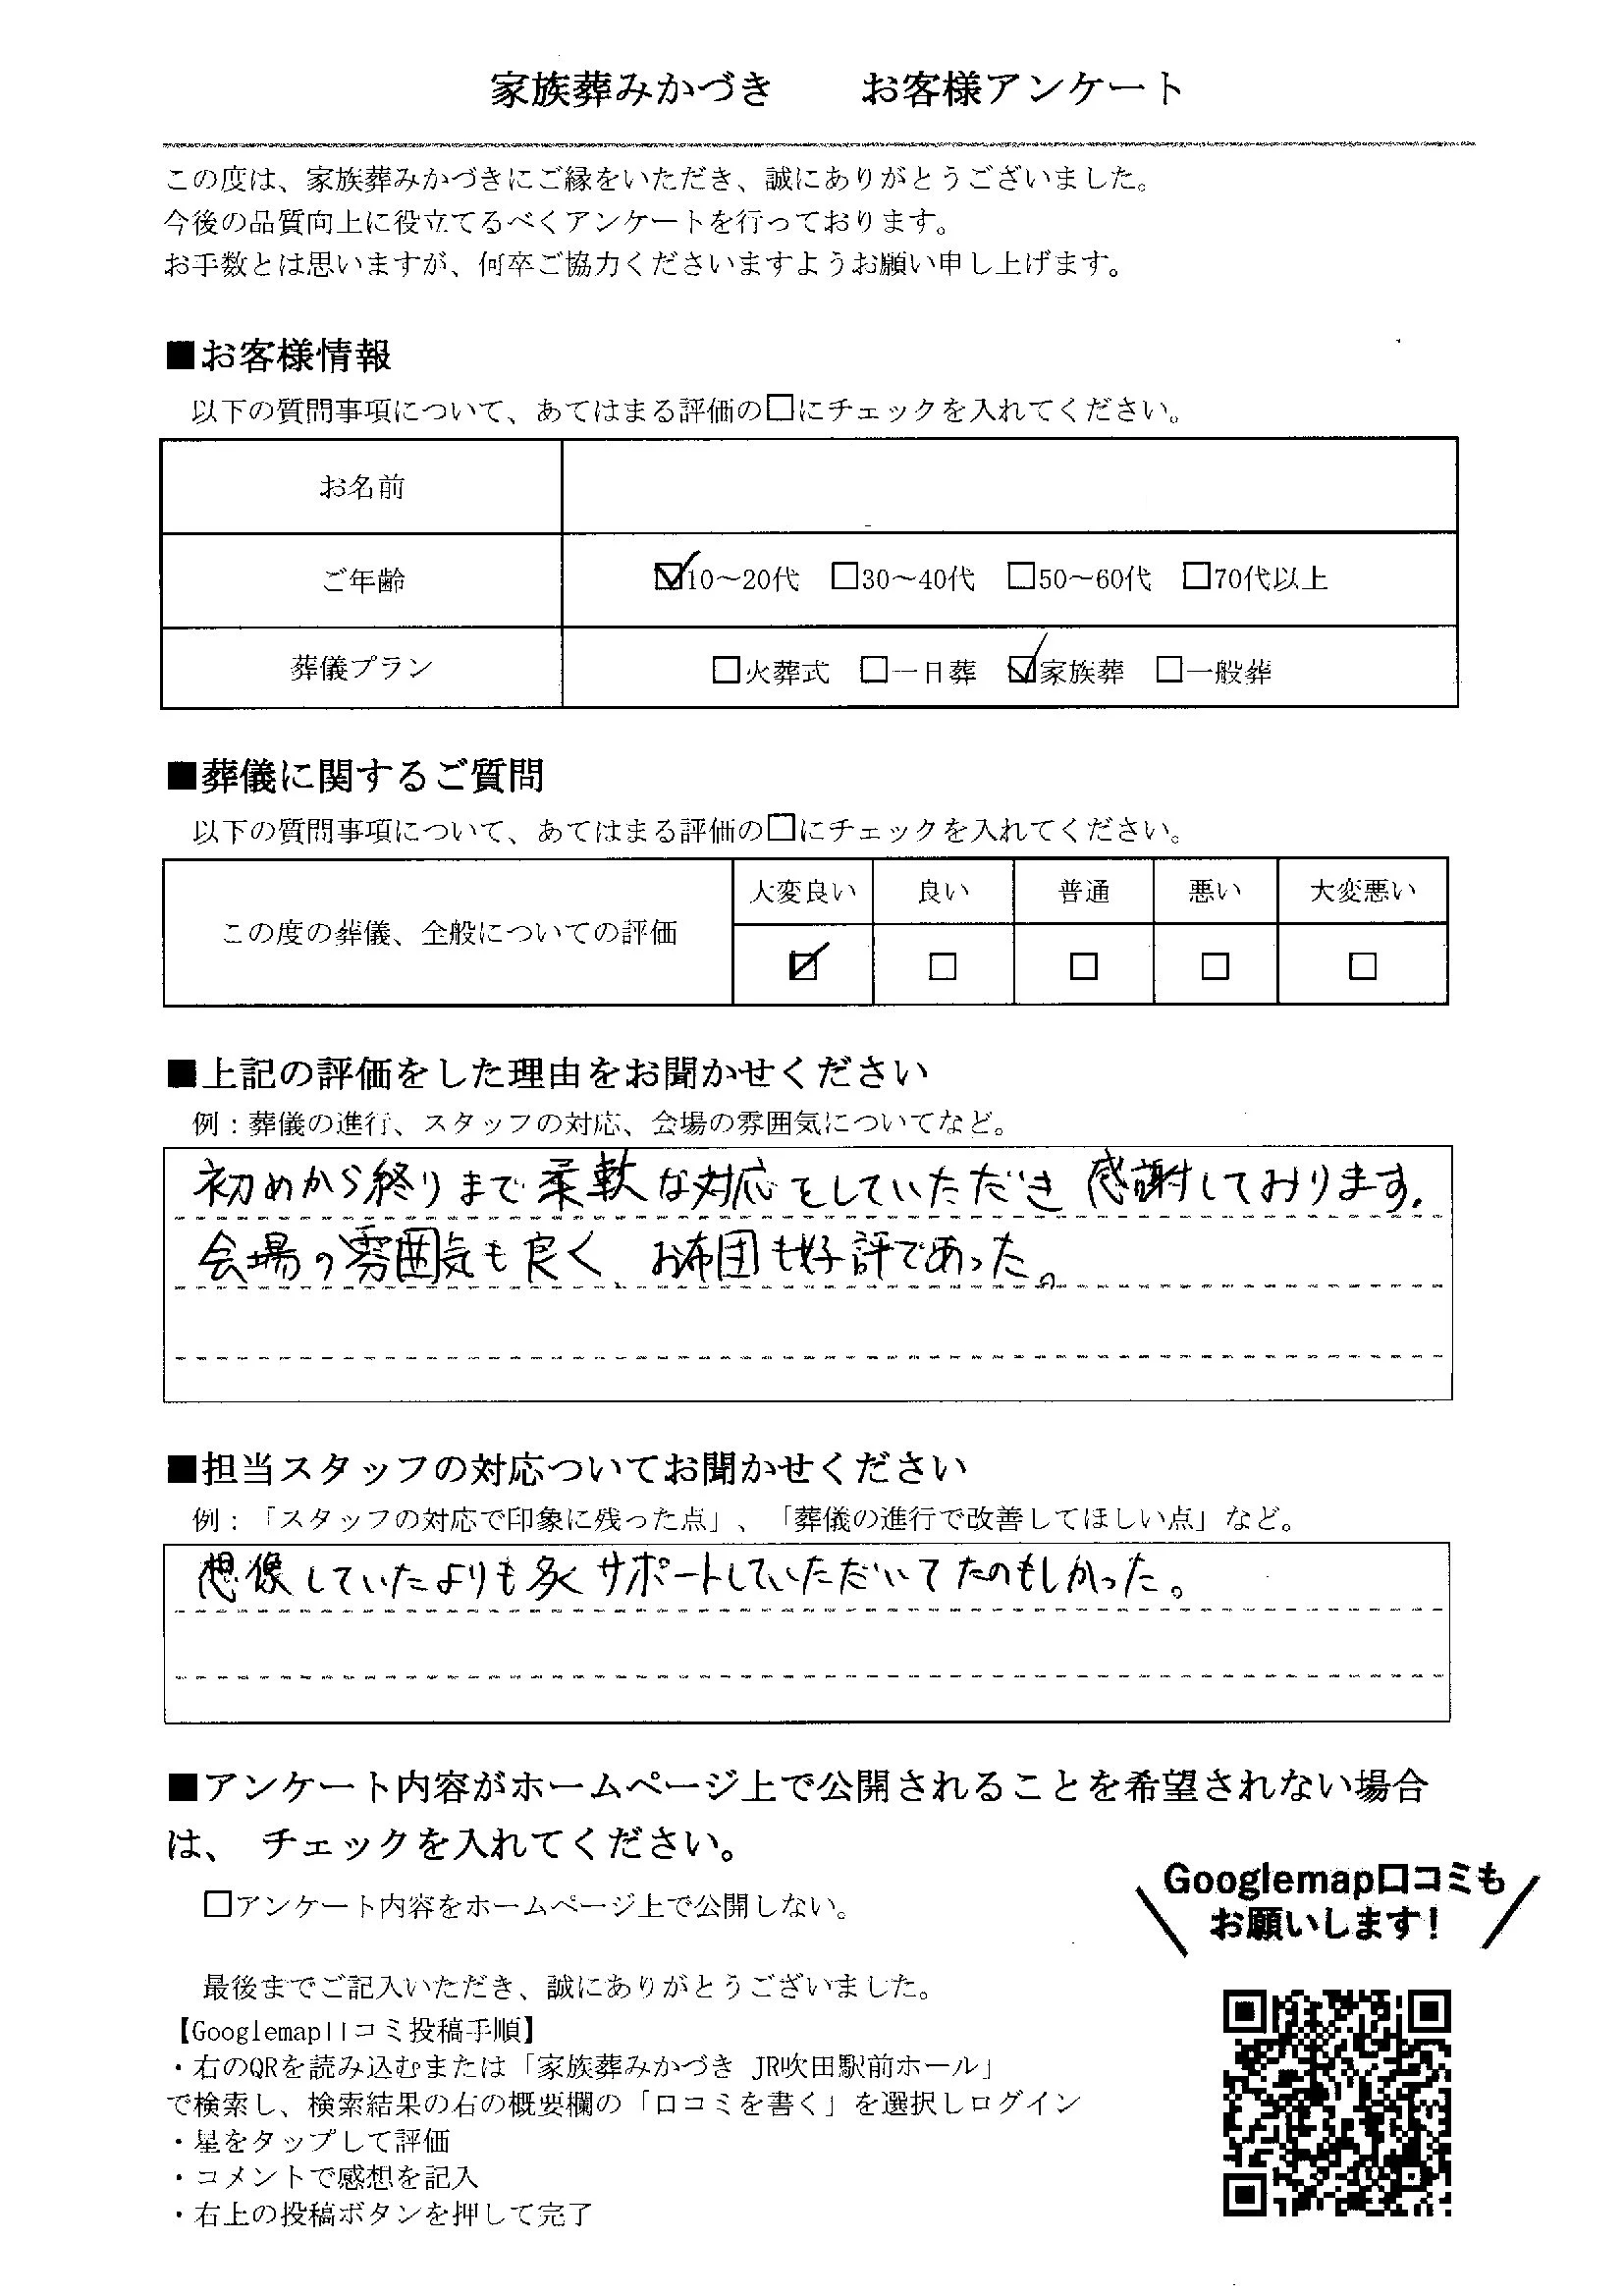 家族葬みかづき　　お客様アンケート
この度は、家族葬みかづきにご縁をいただき、誠にありがとうございました。
今後の品質向上に役立てるべくアンケートを行っております。
お手数とは思いますが、何卒ご協力くださいますようお願い申し上げます。
■お客様情報
以下の質問事項について、あてはまる評価の□にチェックを入れてください。
お名前
ご年齢 ☑10～20代 □30～40代 □50～60代 □70代以上
葬儀プラン □火葬式 □一日葬 ☑家族葬 □一般葬
■葬儀に関するご質問
以下の質問事項について、あてはまる評価の□にチェックを入れてください。
大変良い 良い 普通 悪い 大変悪い
この度の葬儀、全般についての評価
☑ □ □ □ □
■上記の評価をした理由をお聞かせください
例：葬儀の進行、スタッフの対応、会場の雰囲気についてなど。
初めから終りまで柔軟な対応をしていただき感謝しております。
会場の雰囲気も良く、お布団も好評であった。
■担当スタッフの対応ついてお聞かせください
例：「スタッフの対応で印象に残った点」、「葬儀の進行で改善してほしい点」など。
想像していたよりも多くサポートしていただいてたのもしかった。
■アンケート内容がホームページ上で公開されることを希望されない場合
は、 チェックを入れてください。
□アンケート内容をホームページ上で公開しない。
Googlemap口コミも
お願いします！
最後までご記入いただき、誠にありがとうございました。
【Googlemap口コミ投稿手順】
・右のQRを読み込むまたは「家族葬みかづき JR吹田駅前ホール」
で検索し、検索結果の右の概要欄の「口コミを書く」を選択しログイン
・星をタップして評価
・コメントで感想を記入
・右上の投稿ボタンを押して完了